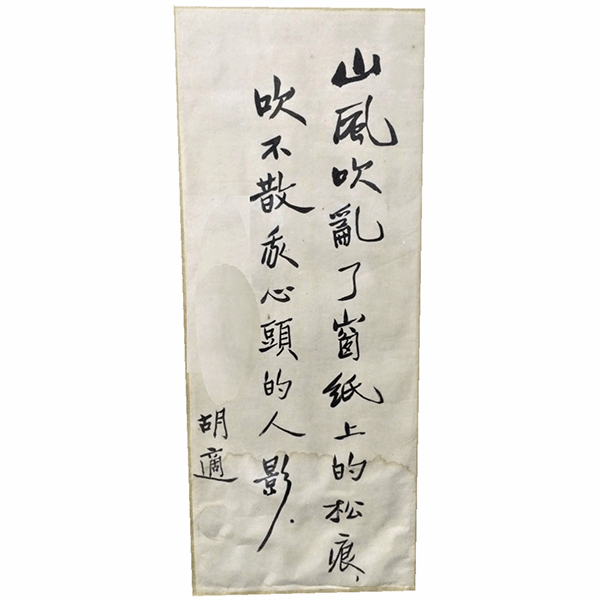 山風吹亂了窗紙上的松痕，
吹不散我心頭的人影．
胡適